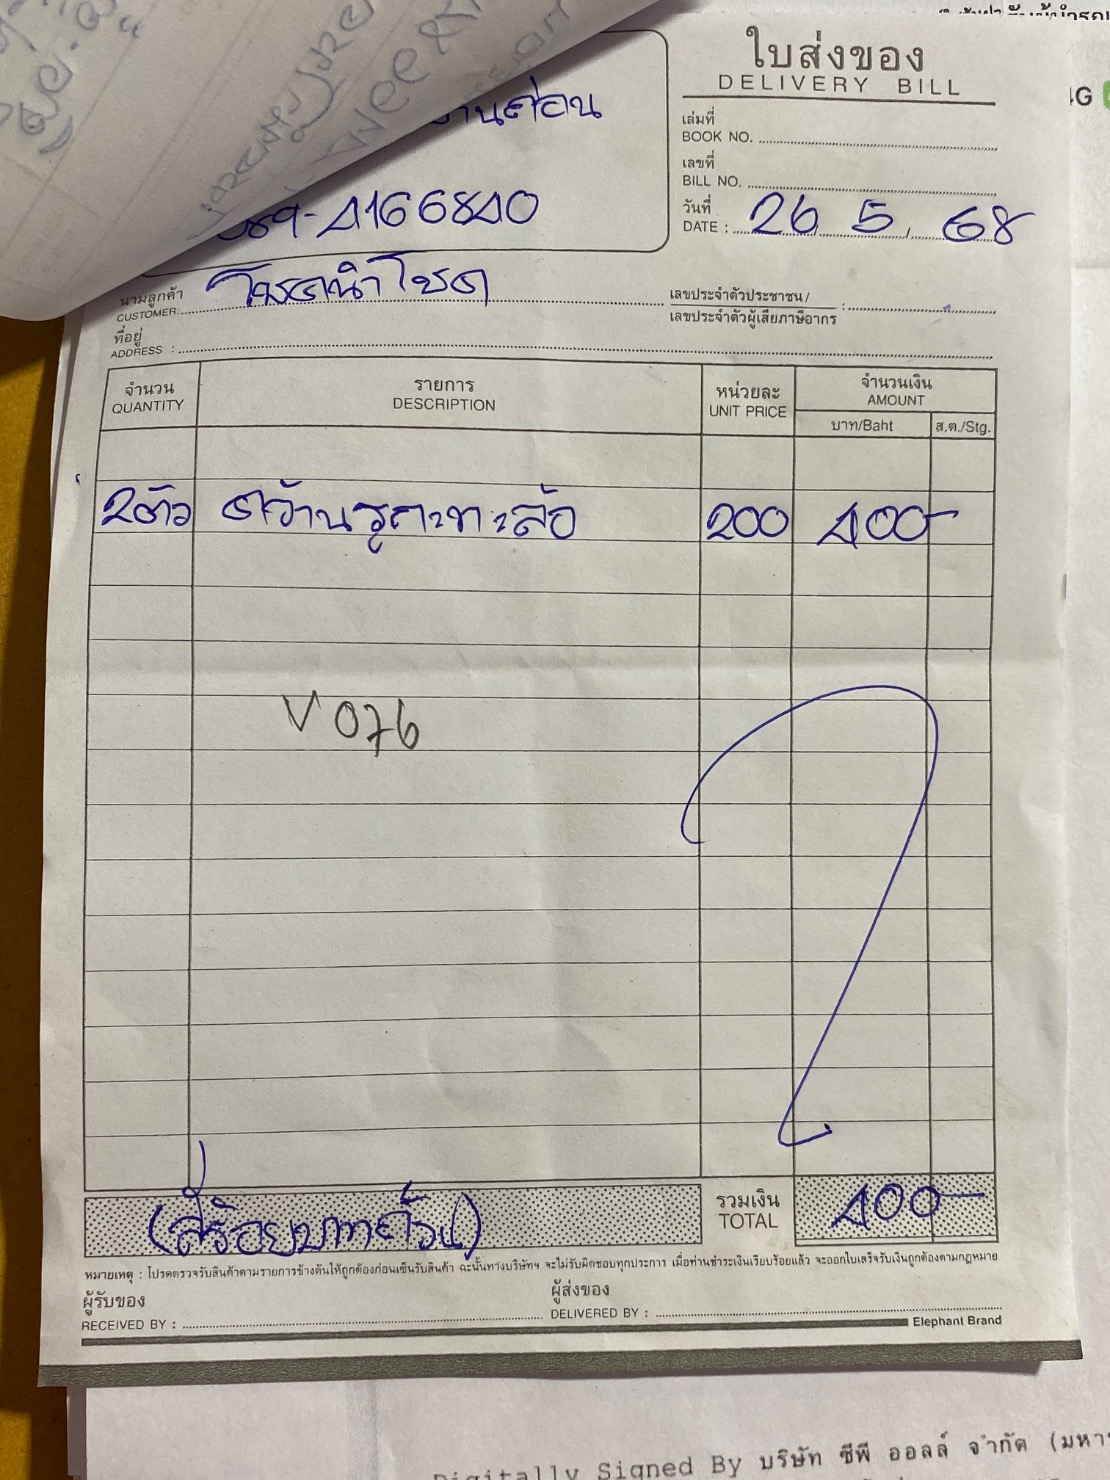 ใบส่งของ
DELIVERY BILL
4G
เล่มที่
BOOK NO.
เลขที่
BILL NO.
วันที่
DATE : 26 5 68
89-4166840
นามลูกค้า
CUSTOMER: โชคนำโชค
เลขประจำตัวประชาชน/
เลขประจำตัวผู้เสียภาษีอากร :
ที่อยู่
ADDRESS :
จำนวน รายการ หน่วยละ จำนวนเงิน
QUANTITY DESCRIPTION UNIT PRICE AMOUNT
บาท/Baht ส.ต./Stg.
2ตัว คว้านรูกะทะล้อ 200 400-
V 076
(สี่ร้อยบาทถ้วน) รวมเงิน TOTAL 400-
หมายเหตุ : โปรดตรวจรับสินค้าตามรายการข้างต้นให้ถูกต้องก่อนเซ็นรับสินค้า ฉะนั้นทางบริษัทฯ จะไม่รับผิดชอบทุกประการ เมื่อท่านชำระเงินเรียบร้อยแล้ว จะออกใบเสร็จรับเงินถูกต้องตามกฎหมาย
ผู้รับของ ผู้ส่งของ
RECEIVED BY : DELIVERED BY :
Elephant Brand
Digitally Signed By บริษัท ซีพี ออลล์ จำกัด (มหา